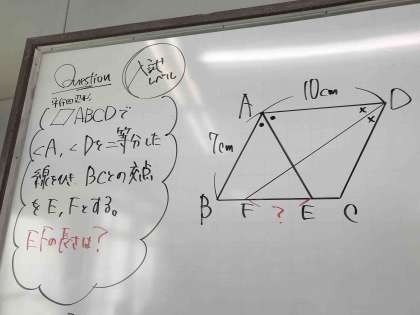 Question
入試
レベル
平行四辺形
▱ABCDで
∠A, ∠Dを二等分した
線をひきBCとの交点
をE, Fとする。
EFの長さは?
10cm
A
D
7cm
B
F
?
E
C